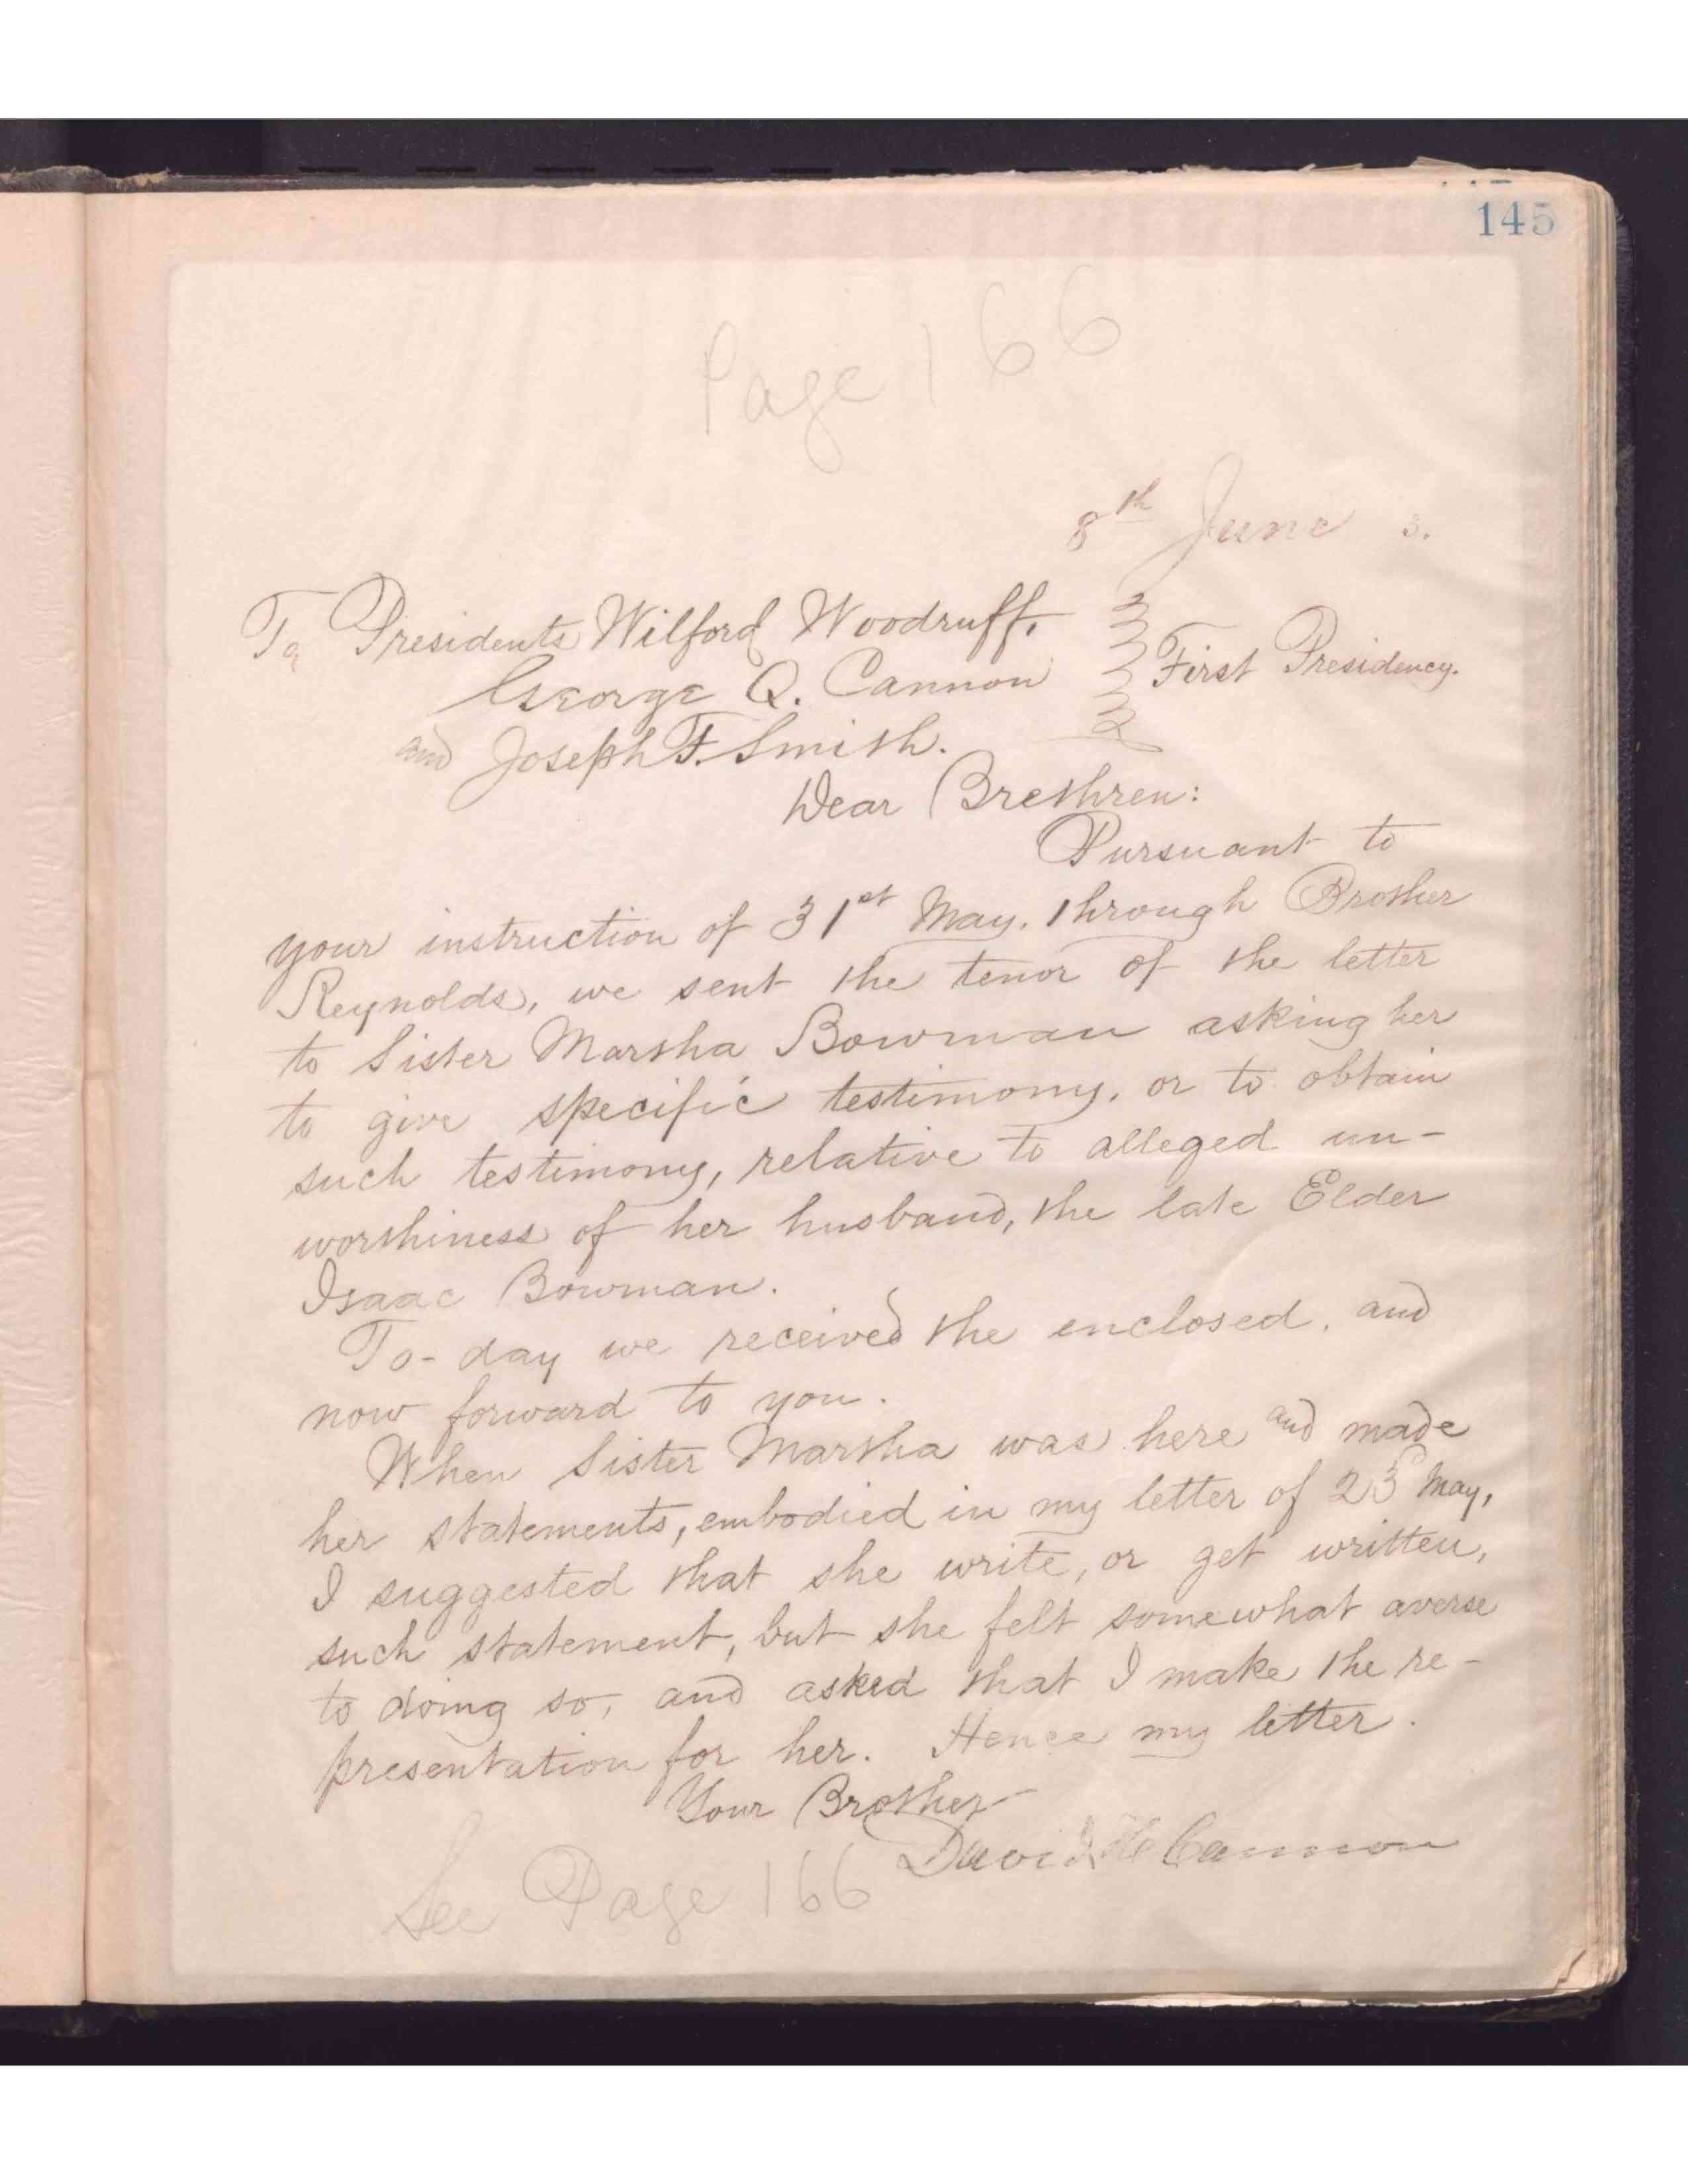 145
Page 166
8th June 3.
To Presidents Wilford Woodruff,
George Q. Cannon
First Presidency.
and Joseph F. Smith.
Dear Brethren:
Pursuant to
your instruction of 31st May, through Brother
Reynolds, we sent the tenor of the letter
to Sister Martha Bowman asking her
to give specific testimony, or to obtain
such testimony, relative to alleged un-
worthiness of her husband, the late Elder
Isaac Bowman.
To-day we received the enclosed, and
now forward to you.
When Sister Martha was here and made
her statements, embodied in my letter of 23d May,
I suggested that she write, or get written,
such statement, but she felt somewhat averse
to doing so, and asked that I make the re-
presentation for her. Hence my letter.
Your Brother
David H. Cannon
See Page 166